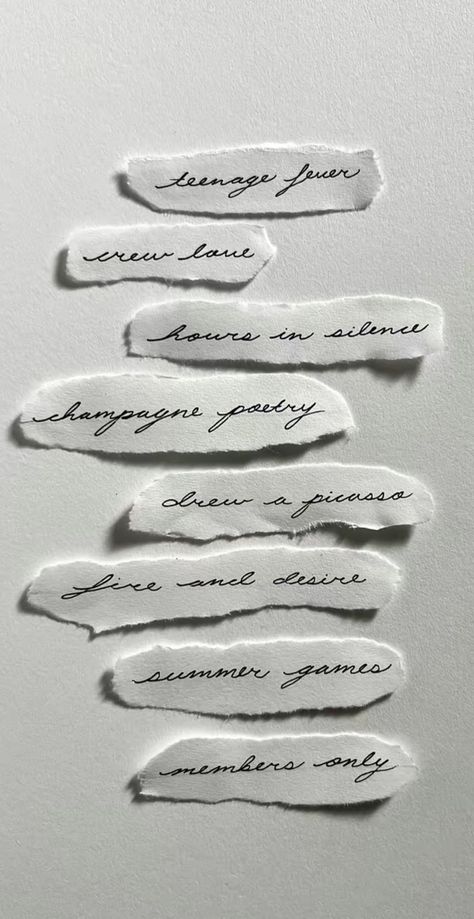 teenage fever
crew love
hours in silence
champagne poetry
drew a picasso
fire and desire
summer games
members only